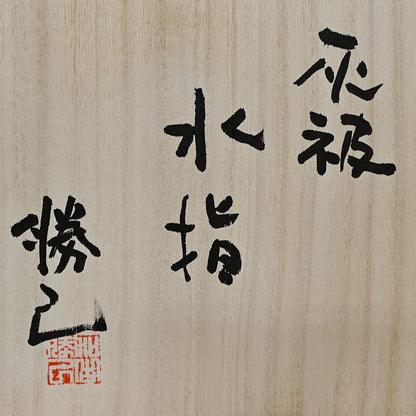 灰被
水指
勝己